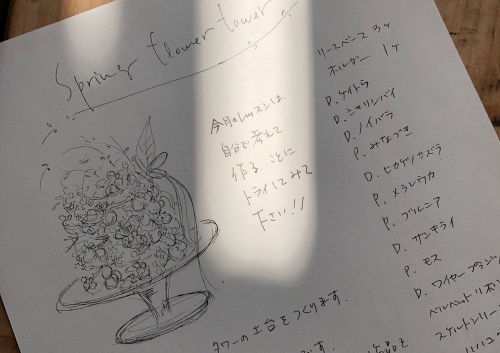 Spring flower tower
今月のLessonは
自分で考えて
作る ことに
トライしてみて
下さい!!
リースベース 3ヶ
ホルダー 1ヶ
D. ケイトウ
D. シャリンバイ
D. ノイバラ
P. みなづき
D. ヒカゲノカズラ
P. メラレウカ
P. ブルニア
D. サンキライ
P. モス
D. ワイヤープランツ
ベルベットリボン
スケルトンリーフ
タワーの土台をつくります.